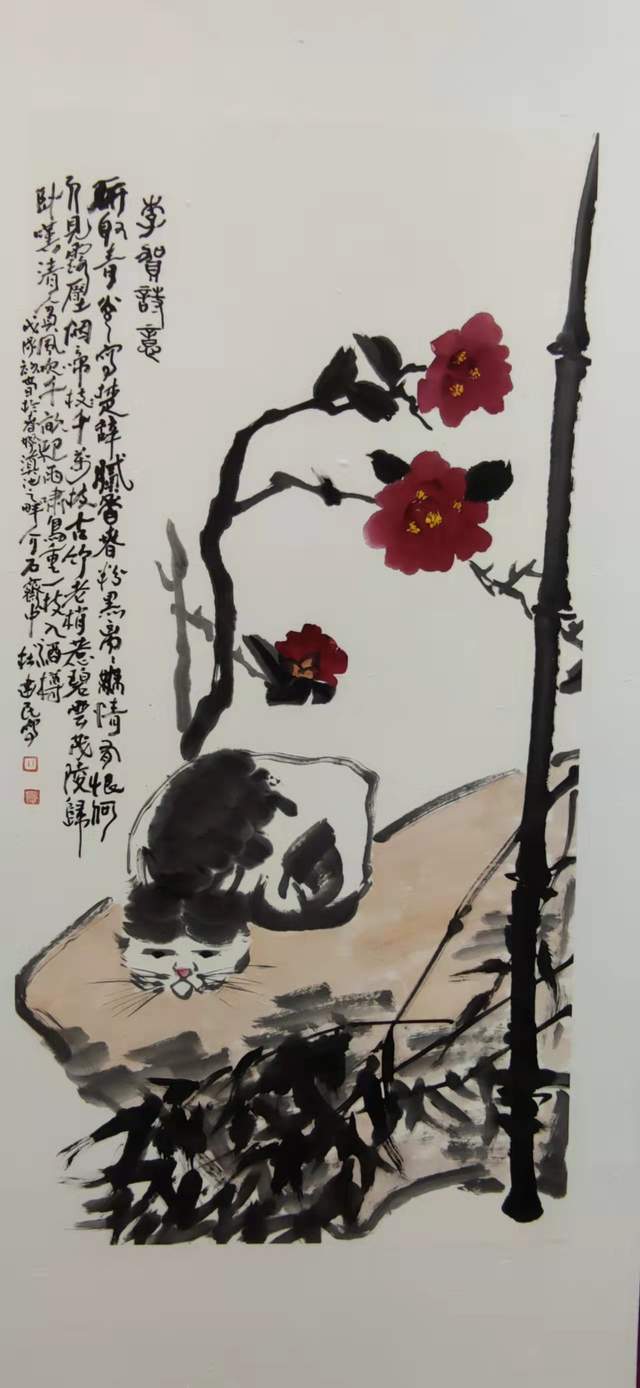 李賀詩意
斫取青光寫楚辭膩香春粉黑离離無情有恨何
人見露壓烟啼枝千万枝古竹老梢惹碧雲茂陵歸
臥嘆清貧風吹千畝迎雨嘯鳥重一枝入酒樽
戊戌初春於春城滇池之畔介石齋中建民寫